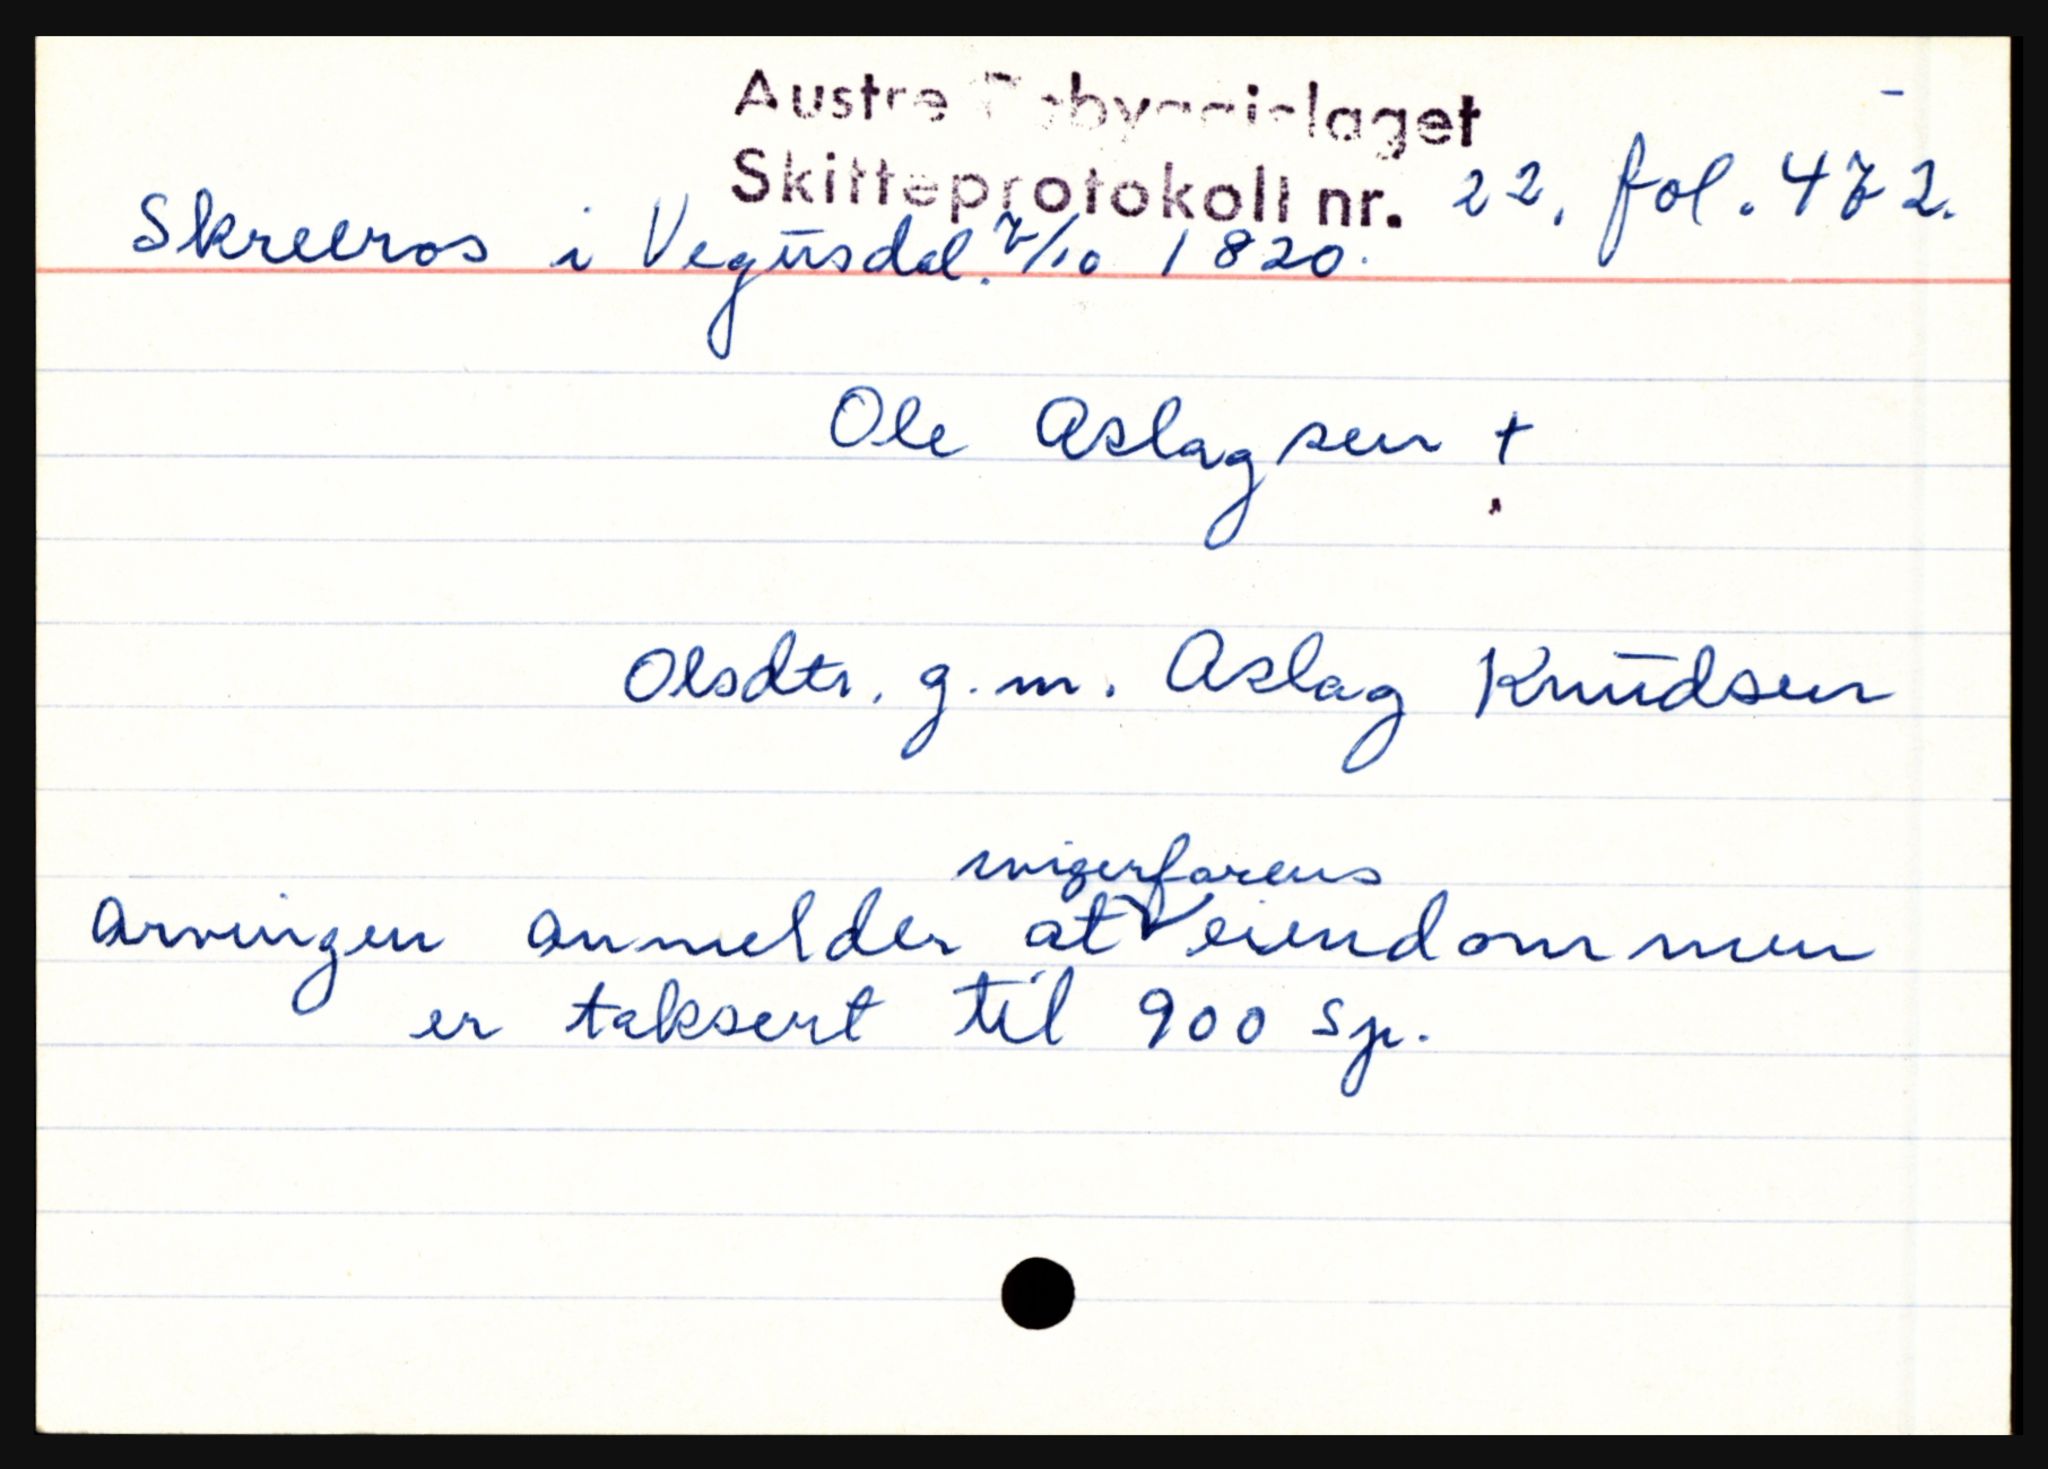 Austre Robyggjelaget
Skifteprotokoll nr. 22, fol. 472.
Skreeros i Vegusdal. 7/10 1820.
Ole Aslagsen +
Olsdtr. g. m. Aslag Knudsen
svigerfarens
Arvingen anmelder at eiendommen
er taksert til 900 sp.